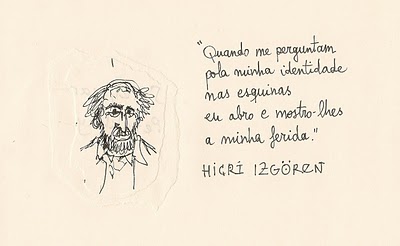 "Quando me perguntam
pola minha identidade
nas esquinas
eu abro e mostro-lhes
a minha ferida."
HIGRÍ IZGÖREN